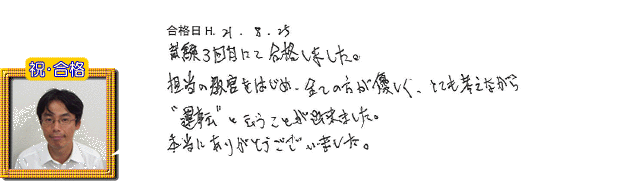 合格日 H. 21. 8. 25
試験3回目にて合格しました。
祝・合格
担当の教官をはじめ、全ての方が優しく、とても考えながら
"運転"と云うことが出来ました。
本当にありがとうございました。